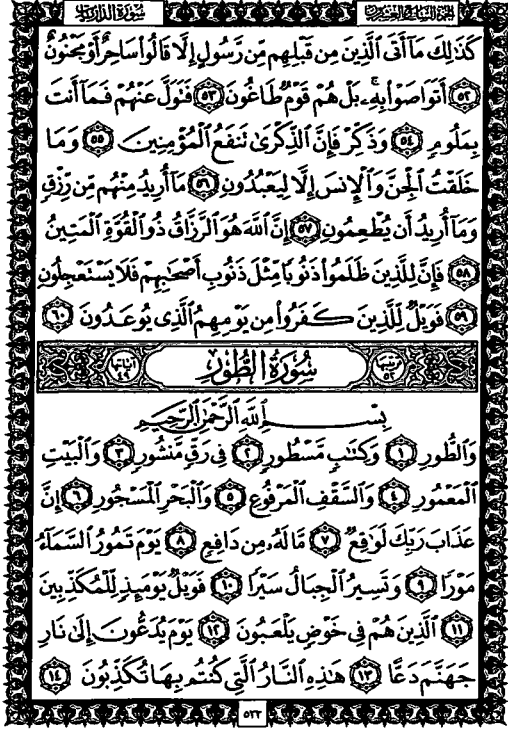 الجزء السابع والعشرون
سورة الذاريات
كَذَٰلِكَ مَآ أَتَى ٱلَّذِينَ مِن قَبْلِهِم مِّن رَّسُولٍ إِلَّا قَالُوا۟ سَاحِرٌ أَوْ مَجْنُونٌ
٥٢ أَتَوَاصَوْا۟ بِهِۦ ۚ بَلْ هُمْ قَوْمٌ طَاغُونَ ٥٣ فَتَوَلَّ عَنْهُمْ فَمَآ أَنتَ
بِمَلُومٍ ٥٤ وَذَكِّرْ فَإِنَّ ٱلذِّكْرَىٰ تَنفَعُ ٱلْمُؤْمِنِينَ ٥٥ وَمَا
خَلَقْتُ ٱلْجِنَّ وَٱلْإِنسَ إِلَّا لِيَعْبُدُونِ ٥٦ مَآ أُرِيدُ مِنْهُم مِّن رِّزْقٍ
وَمَآ أُرِيدُ أَن يُطْعِمُونِ ٥٧ إِنَّ ٱللَّهَ هُوَ ٱلرَّزَّاقُ ذُو ٱلْقُوَّةِ ٱلْمَتِينُ
٥٨ فَإِنَّ لِلَّذِينَ ظَلَمُوا۟ ذَنُوبًا مِّثْلَ ذَنُوبِ أَصْحَٰبِهِمْ فَلَا يَسْتَعْجِلُونِ
٥٩ فَوَيْلٌ لِّلَّذِينَ كَفَرُوا۟ مِن يَوْمِهِمُ ٱلَّذِى يُوعَدُونَ ٦٠
ترتيبها ٥٢
سُورَةُ الطُّورِ
آياتها ٤٩
بِسْمِ ٱللَّهِ ٱلرَّحْمَٰنِ ٱلرَّحِيمِ
وَٱلطُّورِ ١ وَكِتَٰبٍ مَّسْطُورٍ ٢ فِى رَقٍّ مَّنشُورٍ ٣ وَٱلْبَيْتِ
ٱلْمَعْمُورِ ٤ وَٱلسَّقْفِ ٱلْمَرْفُوعِ ٥ وَٱلْبَحْرِ ٱلْمَسْجُورِ ٦ إِنَّ
عَذَابَ رَبِّكَ لَوَٰقِعٌ ٧ مَّا لَهُۥ مِن دَافِعٍ ٨ يَوْمَ تَمُورُ ٱلسَّمَآءُ
مَوْرًا ٩ وَتَسِيرُ ٱلْجِبَالُ سَيْرًا ١٠ فَوَيْلٌ يَوْمَئِذٍ لِّلْمُكَذِّبِينَ
١١ ٱلَّذِينَ هُمْ فِى خَوْضٍ يَلْعَبُونَ ١٢ يَوْمَ يُدَعُّونَ إِلَىٰ نَارِ
جَهَنَّمَ دَعًّا ١٣ هَٰذِهِ ٱلنَّارُ ٱلَّتِى كُنتُم بِهَا تُكَذِّبُونَ ١٤
٥٢٣